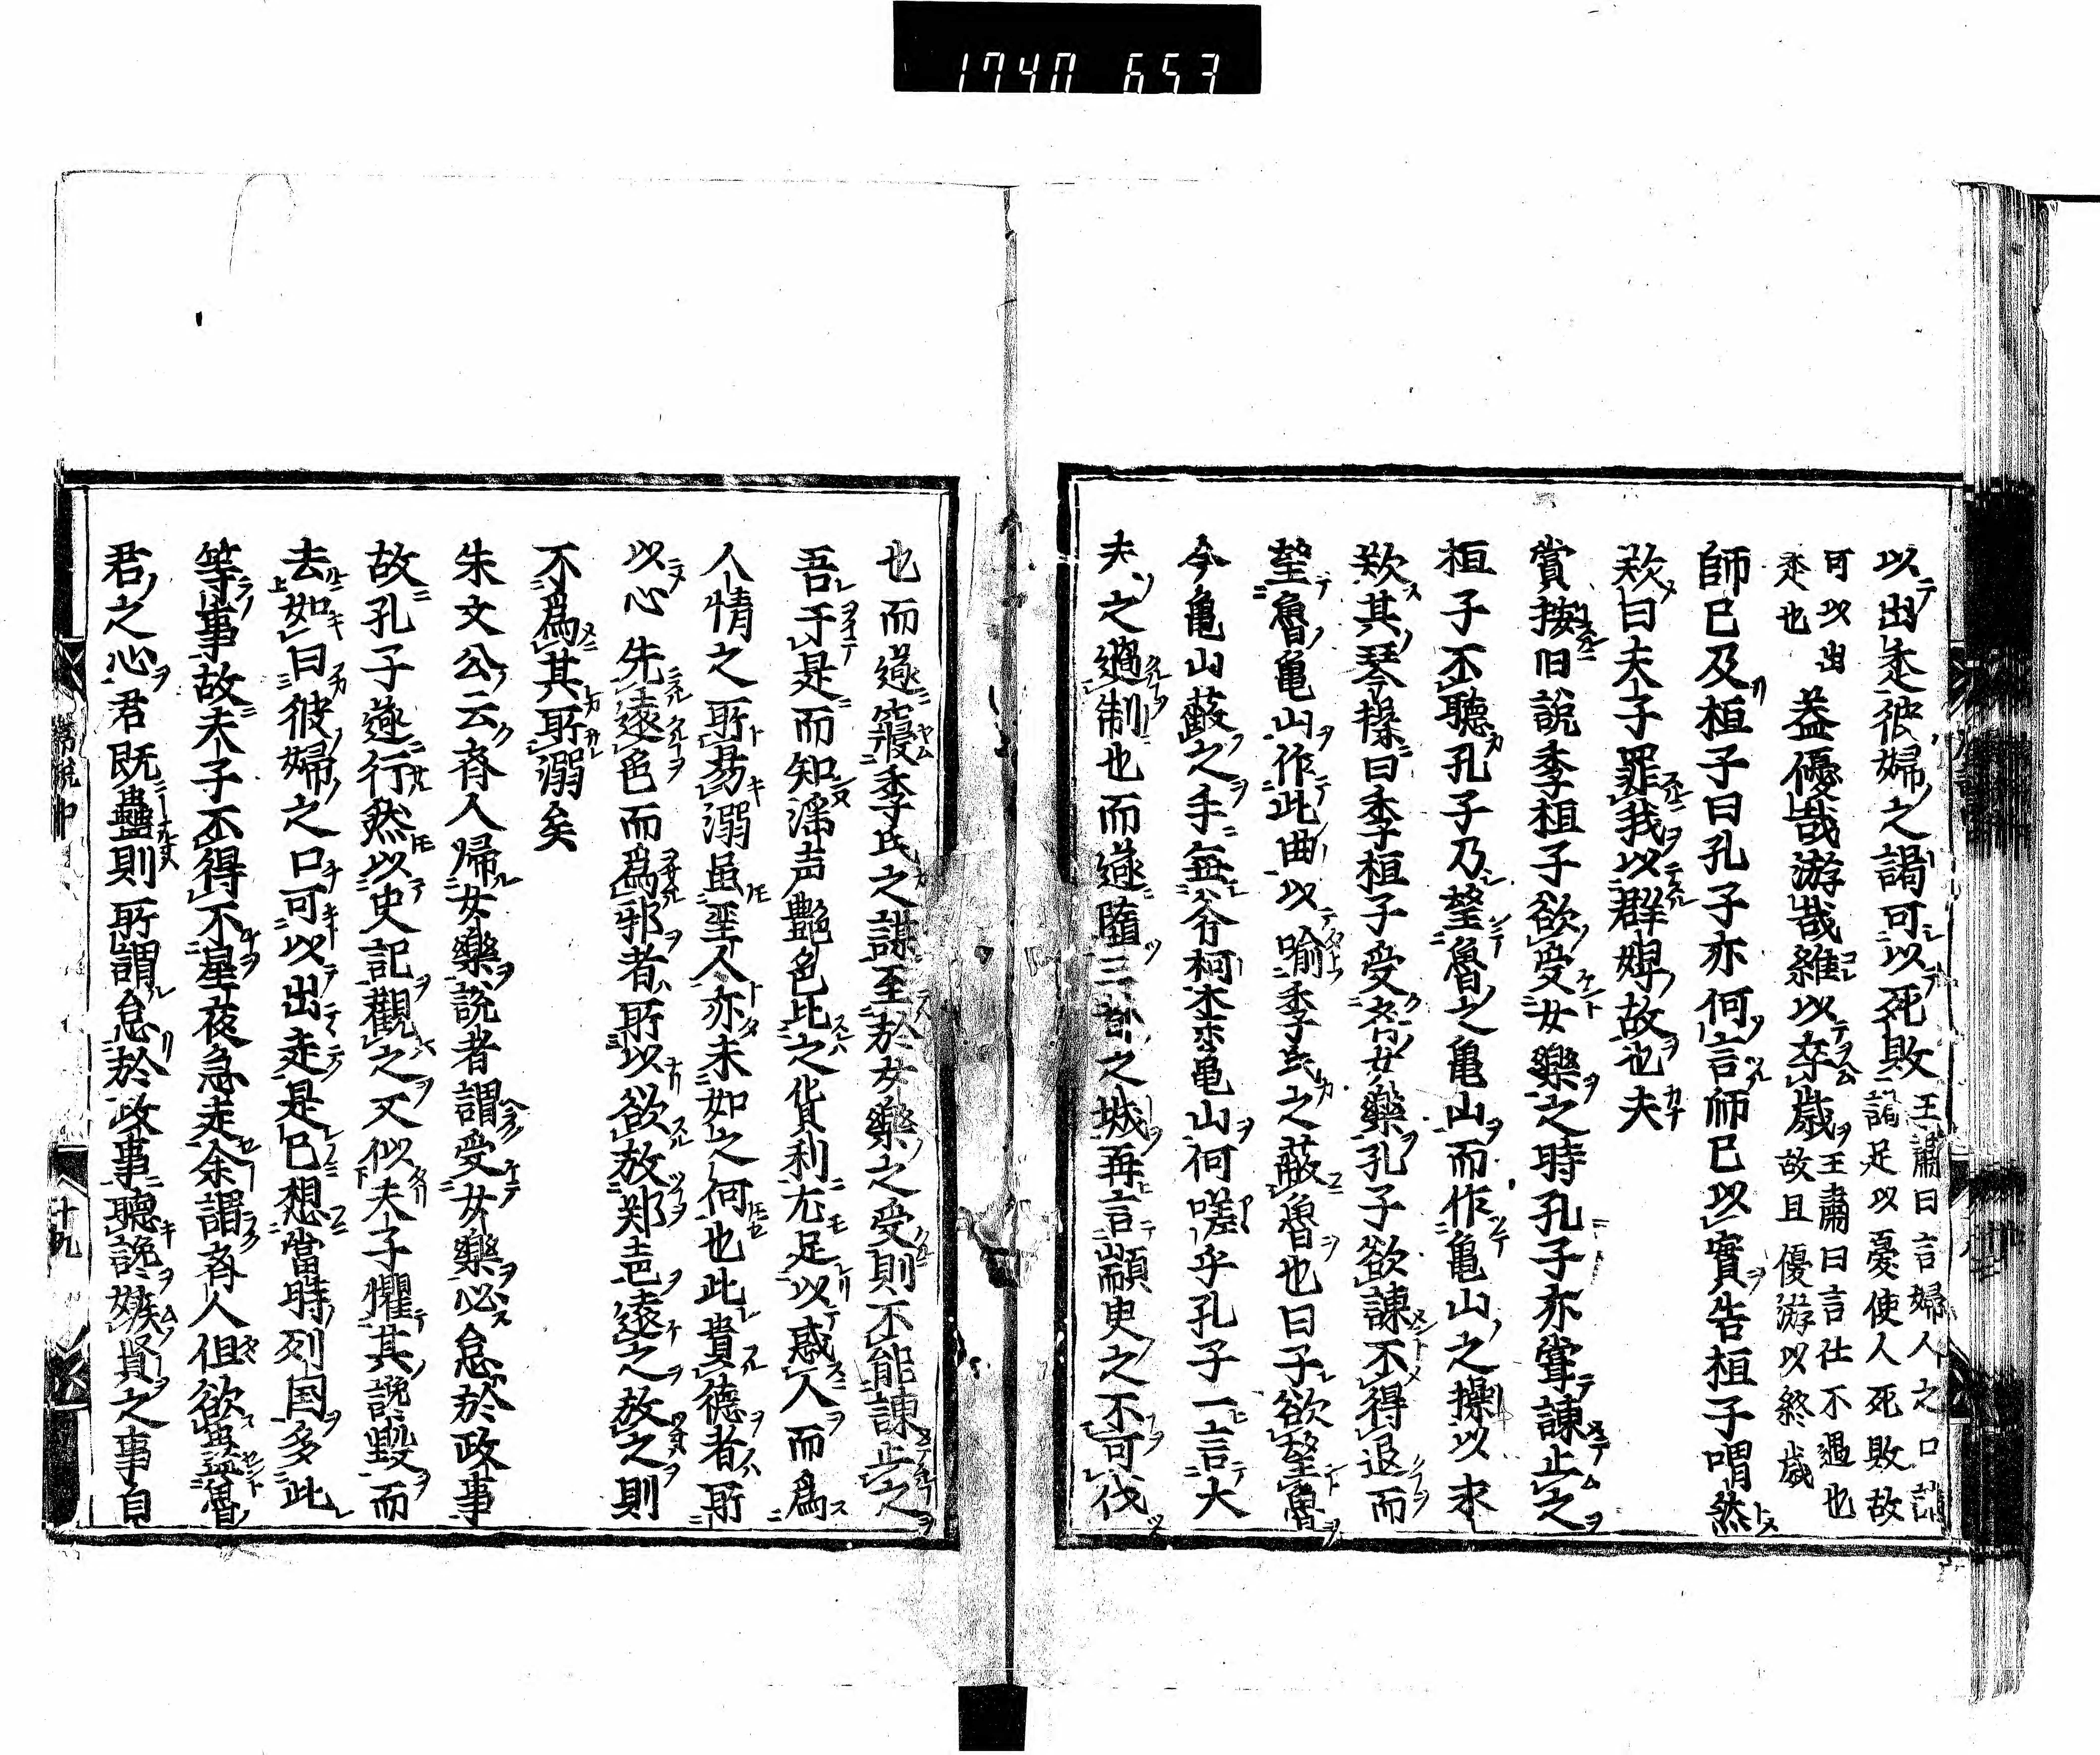 1740 653
以出走彼婦之謁可以死敗王謂曰言婦人之口請謁足以憂使人死敗故
可以出走也蓋優哉游哉維以卒歳王肅曰言仕不遇也故且優游以終歳
師已及桓子曰孔子亦何言師已以實告桓子喟然
歎曰夫子罪我以群婢故也夫
賞按旧說季桓子欲受女樂之時孔子亦甞諌止之
桓子不聽孔子乃望魯之亀山而作亀山之操以来
歎其琴操曰季桓子受斉女樂孔子欲諌不得退而
望魯亀山作此曲以喻季氏之蔽魯也曰予欲望魯
今亀山蔽之手無斧柯柰亀山何嗟乎孔子一言大
夫之過制也而遂墮三都之城再言顓臾之不可伐
也而遂寢季氏之謀至於女樂之受則不能諌止之
吾于是而知滛声艶色比之貨利尤足以惑人而為
人情之所易溺虽垩人亦未如之何也此貴德者所
以心先遠色而為邪者所以欲放郑声遠之放之則
不為其所溺矣
朱文公云斉人歸女樂說者謂受女樂必怠於政事
故孔子遂行然以史記觀之又似夫子懼其讒毀而
去如曰彼婦之口可以出走是已想當時列国多此
等事故夫子不得不星夜急走余謂斉人但欲蠱魯
君之心君既蠱則所謂怠於政事聽讒嫉賢之事自
十九